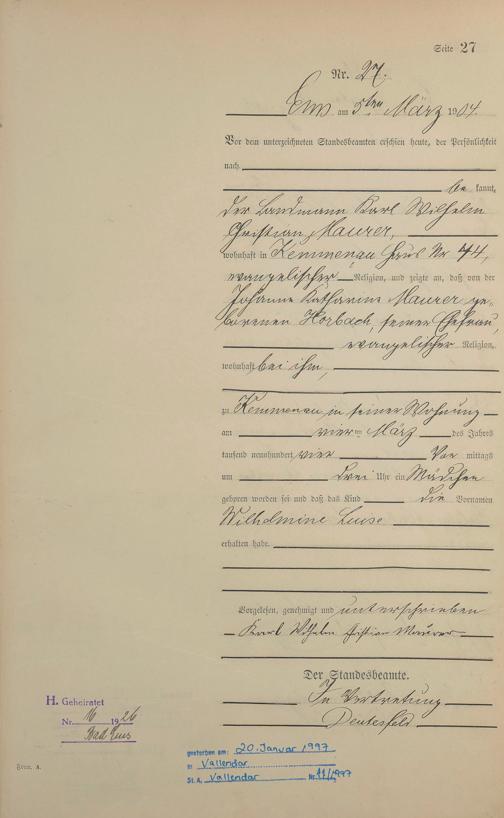 Seite 27
Nr. 27.
Ems am 5ten März 1904.
Vor dem unterzeichneten Standesbeamten erschien heute, der Persönlichkeit
nach
be kannt,
der Landmann Karl Wilhelm
Christian Maurer,
wohnhaft in Kemmenau Haus Nr 44,
evangelischer Religion, und zeigte an, daß von der
Johanne Katharine Maurer ge-
borenen Horbach, seiner Ehefrau,
evangelischer Religion,
wohnhaft bei ihm,
zu Kemmenau in seiner Wohnung
am vierten März des Jahres
tausend neunhundert vier Vor mittags
um drei Uhr ein Mädchen
geboren worden sei und daß das Kind die Vornamen
Wilhelmine Luise
erhalten habe.
Vorgelesen, genehmigt und unterschrieben
Karl Wilhelm Christian Maurer
Der Standesbeamte.
In Vertretung
H. Geheiratet
Nr. 16 1926
Bad Ems
gestorben am: 20. Januar 1997
in Vallendar
St. A. Vallendar Nr. 11/1997
Form. A.